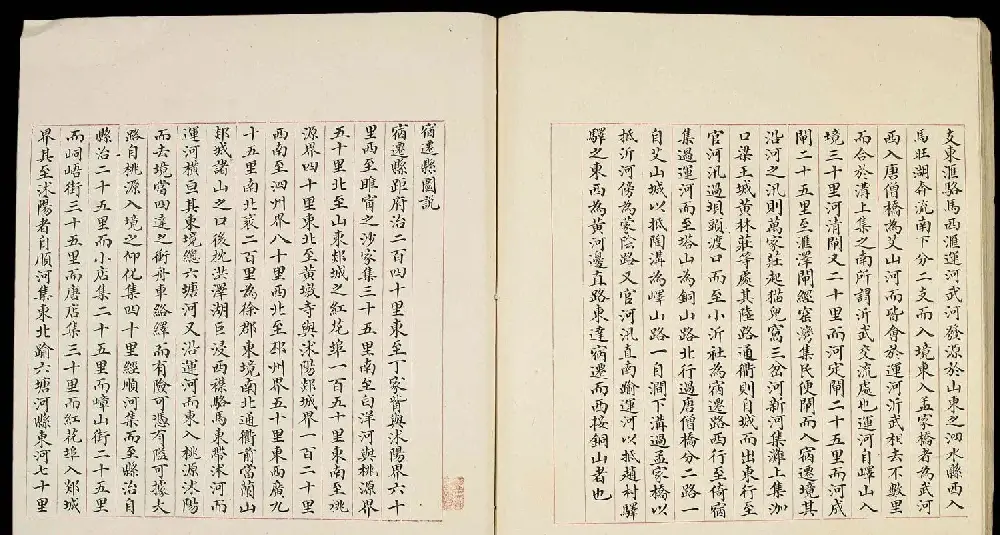 支東滙駱馬西滙運河武河發源於山東之泗水縣西入
馬旺湖奔流南下分二支而入境東入孟家橋者為武河
西入唐僧橋為艾山河而皆會於運河沂武相去不數里
而合於溝上集之南所謂沂武交流處也運河自嶧山入
境三十里河清閘又二十里而河定閘二十五里而河成
閘二十五里至滙澤閘經窑灣集民便閘而入宿遷境其
沿河之汛則萬家莊起猫兒窩三岔河新河集灘上集泇
口梁王城黃林莊等處其陸路通衢則自城而出東行至
官河汛過垻頭渡口而至小沂社為宿遷路西行至倚宿
集過運河而至塔山為銅山路北行過唐僧橋分二路一
自艾山城以抵陶溝為嶧山路一自澗下溝過孟家橋以
抵沂河傍為蒙陰路又官河汛直南踰運河以抵趙村驛
驛之東西為黃河邊直路東達宿遷而西接銅山者也
宿遷縣圖說
宿遷縣距府治二百四十里東至丁家嘴與沭陽界六十
里西至睢寧之沙家集三十五里南至白洋河與桃源界
五十里北至山東郯城之紅花埠一百五十里東南至桃
源界四十里東北至黃墩寺與沭陽郯城界一百二十里
西南至泗州界八十里西北至邳州界五十里東西廣九
十五里南北袤二百里為徐郡東境南北通衢前當蘭山
郯城諸山之口後枕洪澤湖巨浸西襟駱馬東帶沭河而
運河橫亘其東境總六塘河又沿運河而東入桃源沭陽
而去境當四達之衝舟車絡繹而有險可憑有隘可據大
路自桃源入境之仰化集四十里經順河集而至縣治自
縣治二十五里而小店集二十五里而㠉山街二十五里
而峒峿街三十五里而唐店集三十里而紅花埠入郯城
界其至沭陽者自順河集東北踰六塘河縣東河七十里